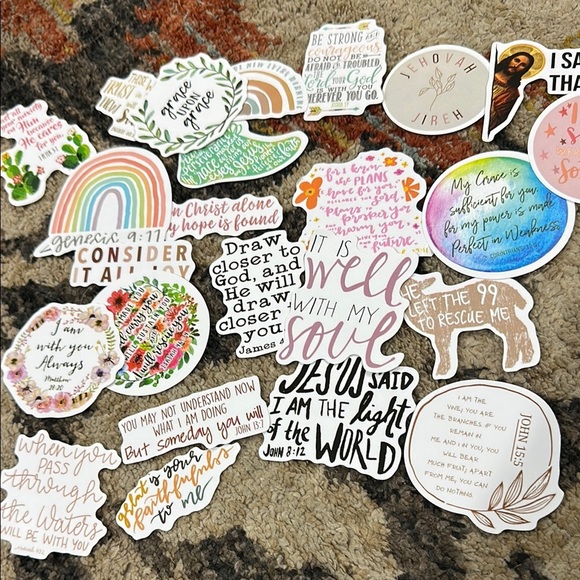 BE STRONG AND
courageous
DO NOT BE
AFRAID OR TROUBLED
THE LORD YOUR GOD
IS WITH YOU
WHEREVER YOU GO.
JEHOVAH
JIREH
I SA
THA
grace
UPON
grace
cares for
you
genesis 9:11
in Christ alone
my hope is found
CONSIDER
IT ALL JOY
Draw
closer to
God, and
He will
draw
closer
you
James
for I know
the PLANS
I have for you
declares the Lord
future
My Grace is
sufficient for you,
for my power is made
Perfect in Weakness.
IT IS
well
WITH MY
soul
HE
LEFT THE 99
TO RESCUE ME
I am
with you
Always
Matthew
28:20
carry you
I will rescue you
YOU MAY NOT UNDERSTAND NOW
WHAT I AM DOING
But someday you will
JOHN 13:7
JESUS SAID
I AM THE light
of the WORLD
JOHN 8:12
I AM THE
VINE; YOU ARE
THE BRANCHES. IF YOU
REMAIN IN
ME AND I IN YOU, YOU
WILL BEAR
MUCH FRUIT; APART
FROM ME, YOU CAN
DO NOTHING.
JOHN 15:5
when you
PASS
through
the Waters
I WILL BE WITH YOU
great is your
faithfulness
to me